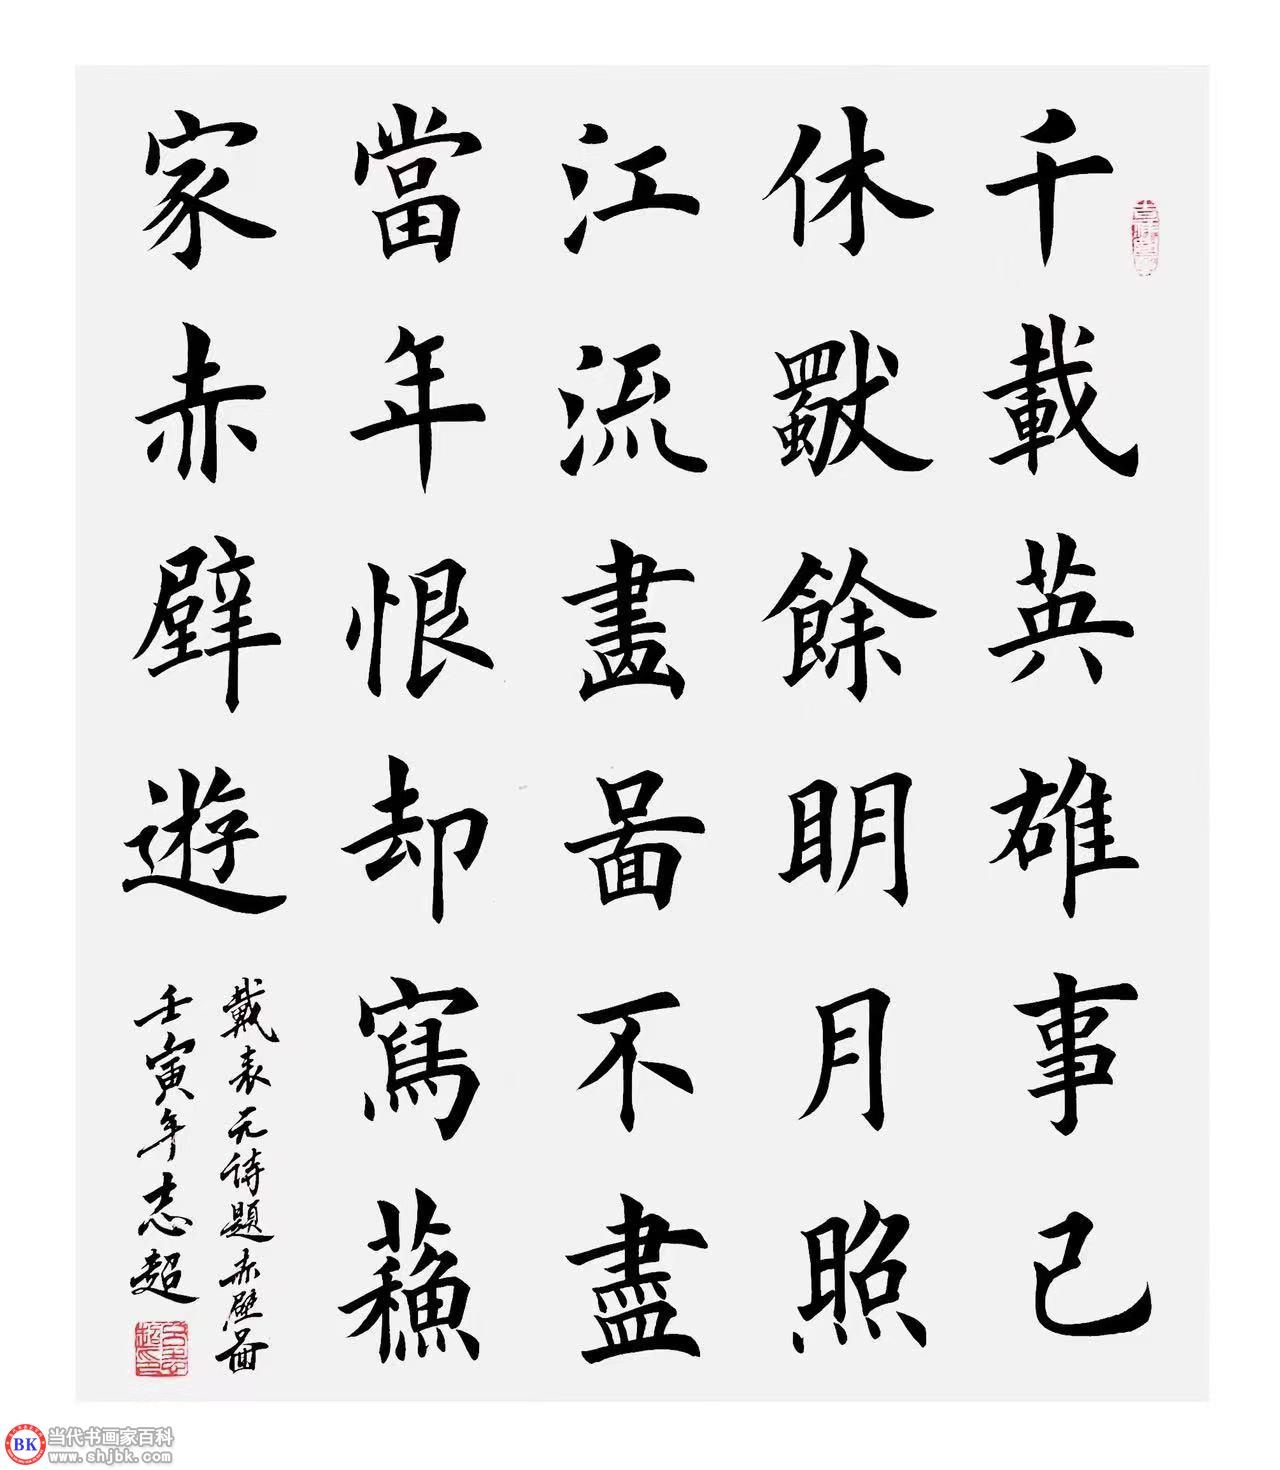 千載英雄事已
休獨餘明月照
江流畫啚不盡
當年恨却寫蘓
家赤壁遊
戴表元诗題赤壁啚
壬寅年志超
BK
当代书画家百科
www.shjbk.com